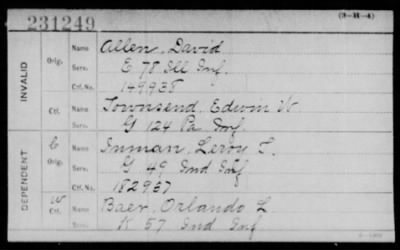 231249
(3-H-4)
INVALID
Orig. Name Allen, David
Serv. E 78 Ill Inf.
Ctf. No. 149938
Ctf. Name Townsend, Edwin W
Serv. G 124 Pa Inf.
DEPENDENT
C Orig. Name Inman, Leroy T.
Serv. G 49 Ind Inf
Ctf. No. 182937
W Ctf. Name Baer, Orlando L.
Serv. K 57 Ind Inf